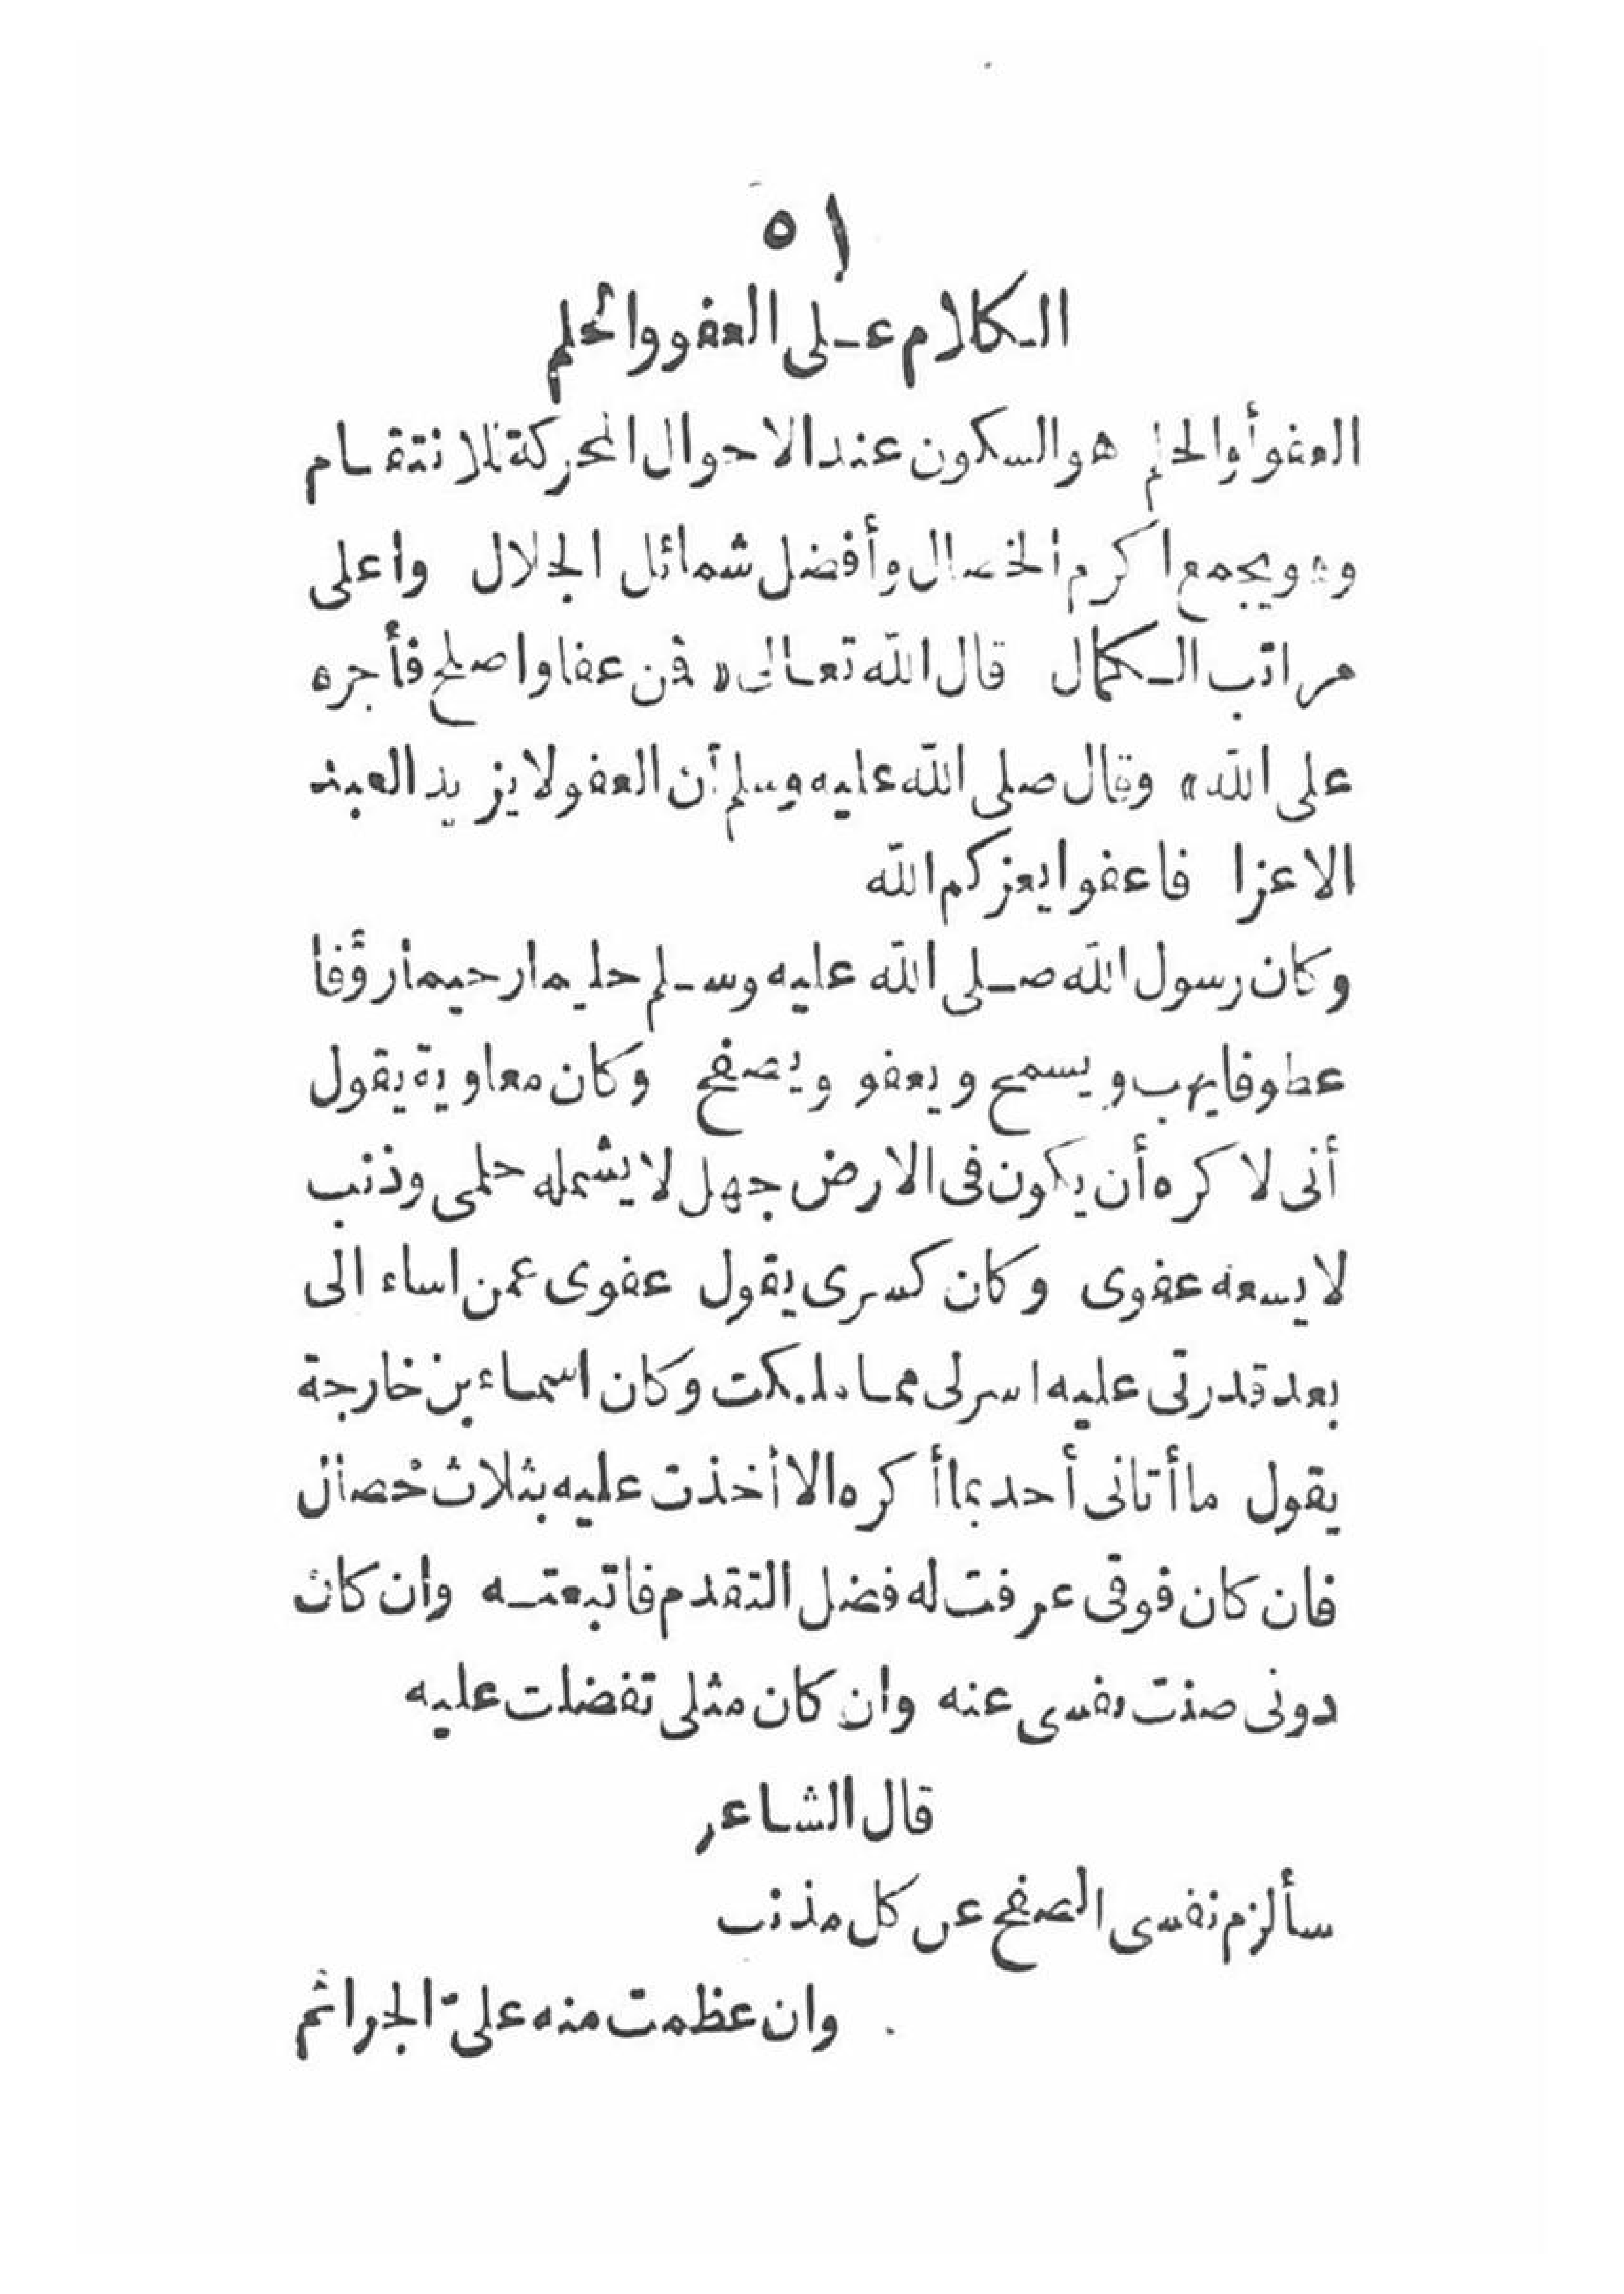 ٥١
الكلام على العفو والحلم
العفو أو الحلم هو السكون عند الاحوال المحركة للانتقام
وهو يجمع اكرم الخصال وأفضل شمائل الجلال واعلى
مراتب الكمال قال الله تعالى «فمن عفا واصلح فأجره
على الله» وقال صلى الله عليه وسلم أن العفو لا يزيد العبد
الا عزا فاعفوا يعزكم الله
وكان رسول الله صلى الله عليه وسلم حليما رحيما رؤفا
عطوفا يهب ويسمح ويعفو ويصفح وكان معاوية يقول
أنى لا كره أن يكون فى الارض جهل لا يشمله حلمى وذنب
لا يسعه عفوى وكان كسرى يقول عفوى عمن اساء الى
بعد قدرتى عليه اسر لى مما ملكت وكان اسماء بن خارجة
يقول ما أتانى أحد بما أكره الا أخذت عليه بثلاث خصال
فان كان فوقى عرفت له فضل التقدم فاتبعته وان كان
دونى صنت نفسى عنه وان كان مثلى تفضلت عليه
قال الشاعر
سألزم نفسى الصفح عن كل مذنب
وان عظمت منه علىّ الجرائم